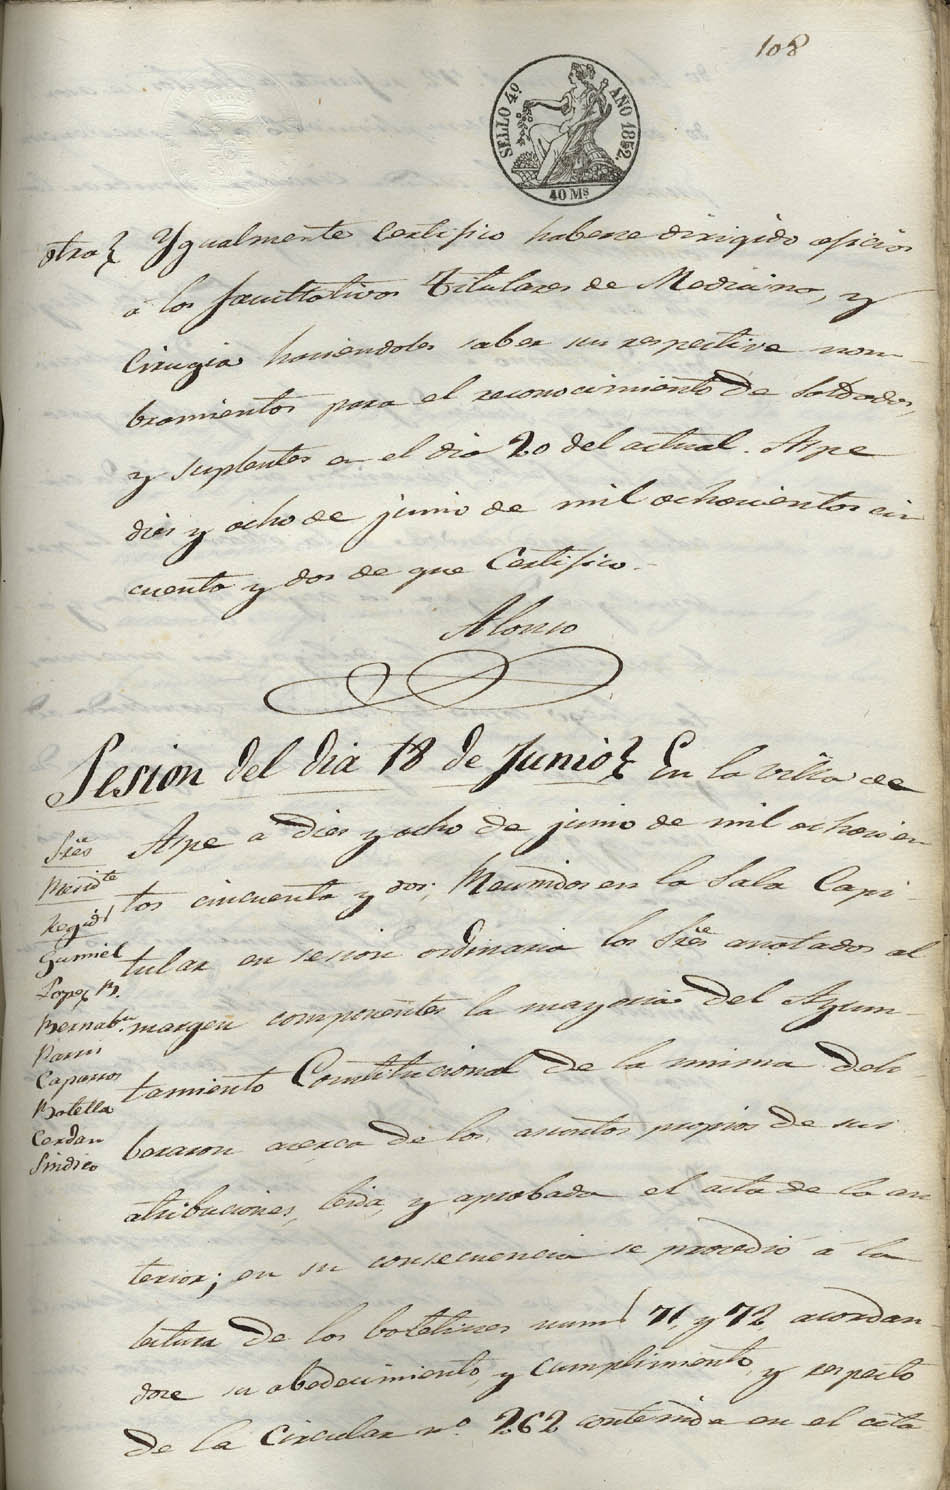 108
SELLO 4º AÑO 1852.
40 Ms
otra} Ygualmente Certifico haberse dirigido oficios
a los facultativos Titulares de Medicina, y
Cirugia haciendoles saber sus respective nom-
bramientos para el reconocimiento de Soldados,
y suplentes en el dia 20 del actual. Aspe
dies y ocho de junio de mil ochocientos cin
cuenta y dos de que Certifico.-
Alonso
Sesion del dia 18 de Junio} En la villa de
Aspe a dies y ocho de junio de mil ochocien
tos cincuenta y dos; Reunidos en la Sala Capi-
tular en sesion ordinaria los Sres anotados al
margen componentes la mayoria del Ayun-
tamiento Constitucional de la misma deli-
beraron acerca de los asuntos propios de sus
atribuciones, leida, y aprobada el acta de la an
terior; en su consecuencia se procedió á la
lectura de los boletines num 71, y 72 acordan-
dose su obedecimiento, y cumplimiento, y respecto
de la Circular nº. 262 contenida en el acta
Sres
Presidte
Regid
Gumiel
Lopez B.
Bernabe
Pavia
Caparros
Botella
Cerdan
Sindico